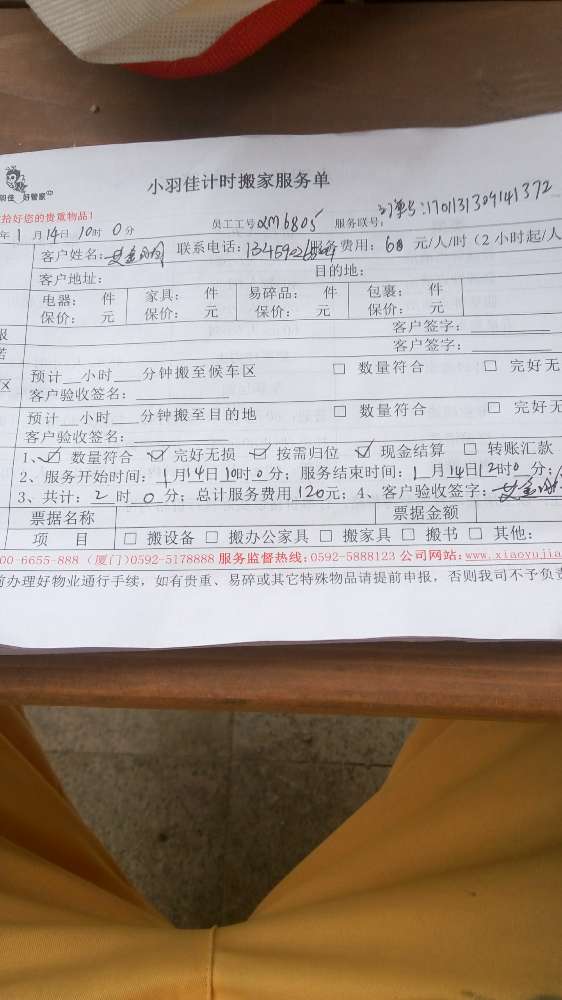 小羽佳计时搬家服务单
羽佳 好管家
拾好您的贵重物品!
员工工号XM6805 服务联号: 订单号:170131309141372
年1月14日10时0分
客户姓名: 联系电话: 服务费用:60元/人/时(2小时起/人
客户地址: 目的地:
电器: 件 家具: 件 易碎品: 件 包裹: 件
保价: 元 保价: 元 保价: 元 保价: 元
报 客户签字:
诺 客户签字:
区 预计__小时___分钟搬至候车区 □ 数量符合 □ 完好无
客户验收签名:
预计__小时___分钟搬至目的地 □ 数量符合 □ 完好无
客户验收签名:
1、☑ 数量符合 ☑ 完好无损 ☑ 按需归位 ☑ 现金结算 □ 转账汇款
2、服务开始时间:1月14日10时0分;服务结束时间:1月14日12时0分;
3、共计:2时0分;总计服务费用120元;4、客户验收签字:
票据名称 票据金额
项 目 □ 搬设备 □ 搬办公家具 □ 搬家具 □ 搬书 □ 其他:
00-6655-888(厦门)0592-5178888 服务监督热线:0592-5888123 公司网站:www.xiaoyujia
前办理好物业通行手续,如有贵重、易碎或其它特殊物品请提前申报,否则我司不予负责